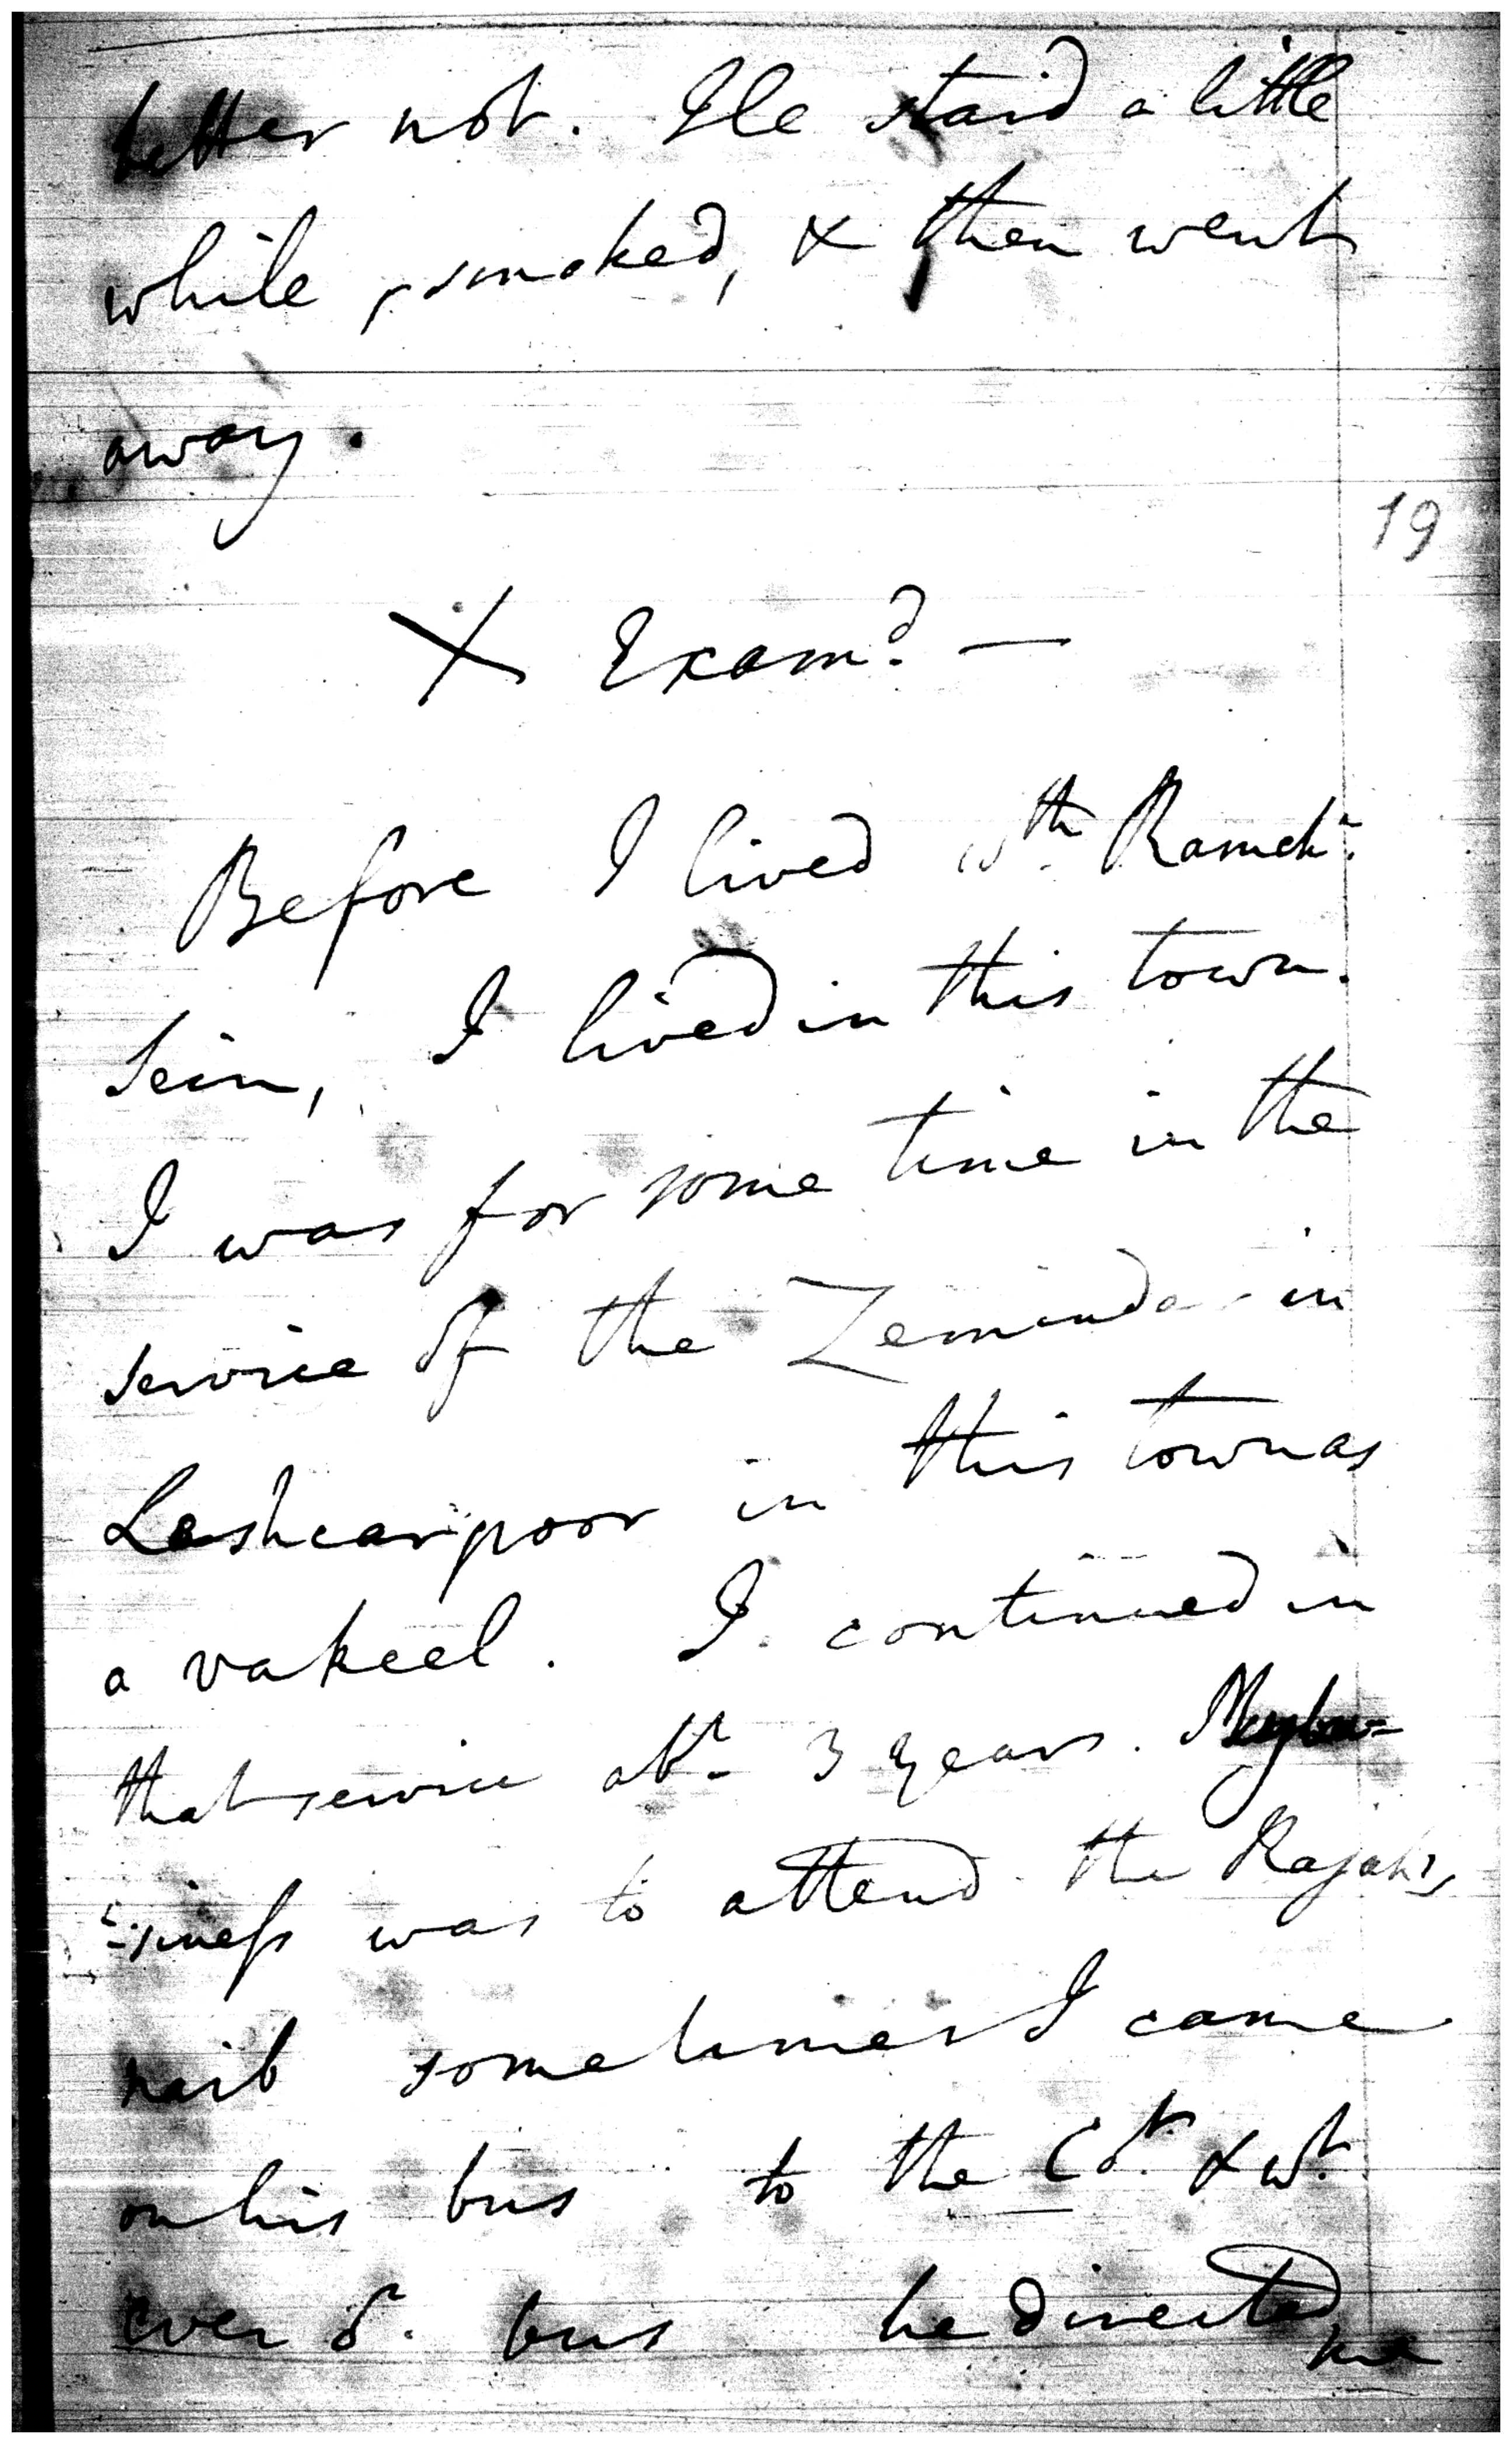 better not. He staid a little
while, smoked, & then went
away.
19
X Examd. —
Before I lived wth. Ramchr.
Sein, I lived in this town.
I was for some time in the
service of the Zemindar in
Lashcarpoor in this town as
a vakeel. I continued in
that service abt. 3 years. My bu-
-siness was to attend the Rajah's
naib sometimes I came
on his bus to the Ct. & wt.
ever or. bus he directed
me